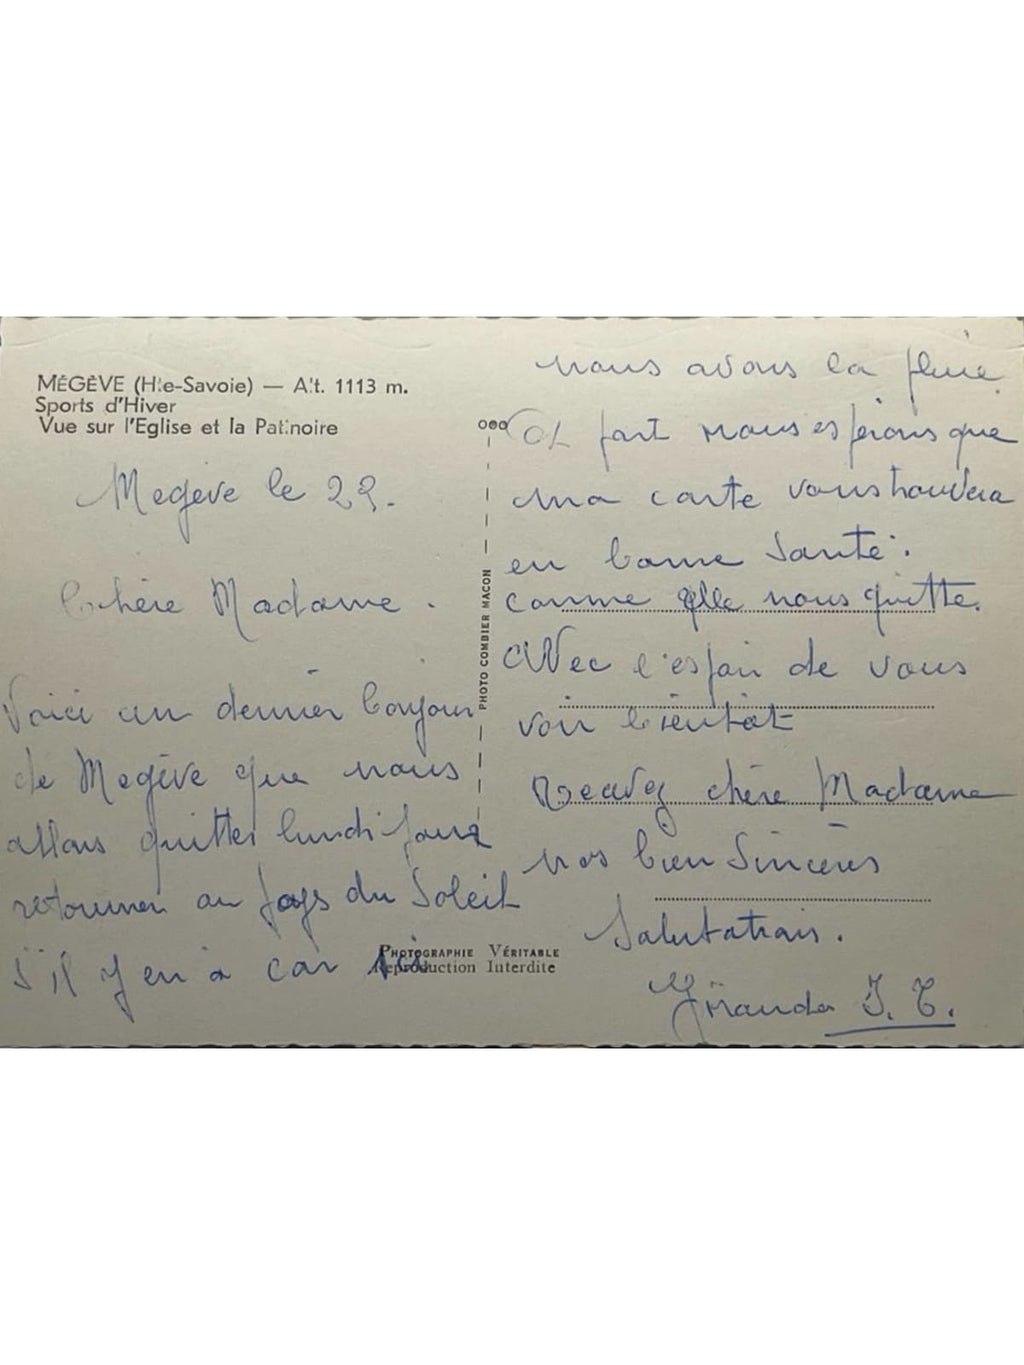 MÉGÈVE (Hte-Savoie) — Alt. 1113 m.
Sports d'Hiver
Vue sur l'Eglise et la Patinoire
Megève le 29.
chère Madame.
Voici un dernier bonjour
de Megève que nous
allons quitter lundi pour
retourner au pays du Soleil
s'il y en a car ici
PHOTO COMBIER MACON
PHOTOGRAPHIE VÉRITABLE
Reproduction Interdite
nous avons la pluie.
nous espérons que
ma carte vous trouvera
en bonne Santé.
comme qlle nous quitte.
Avec l'espoir de vous
voir bientôt
Recevez chère Madame
nos bien Sincères
Salutations.